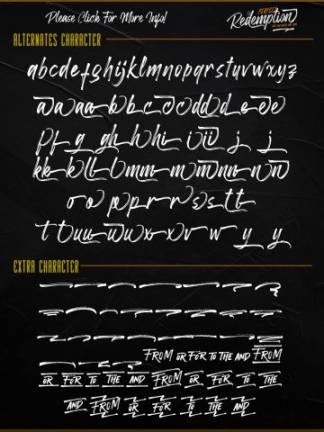 Please Click For More Info!
PERFECT
Redemption
ALTERNATES CHARACTER
abcdefghijklmnopqrstuvwxyz
a a a a b b c c d d d d e e e
f f g g h h h i i i i j j
k k k l l l m m m m n n n n
o o p p r r s s t t
t t u u u v u x x v w y y
EXTRA CHARACTER
FROM OR FOR TO THE AND FROM
OR FOR TO THE AND FROM OR FOR TO THE
AND FROM OR FOR TO THE AND